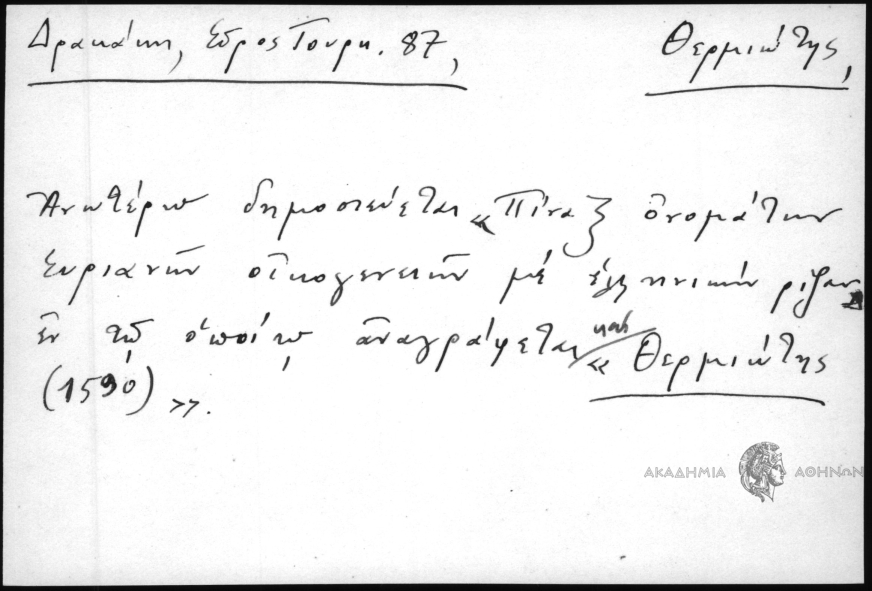 Δρακάκη, Σῦρος Τουρκ. 87, Θερμιώτης,
Ἀνωτέρω δημοσιεύεται «Πίναξ ὀνομάτων
Συριανῶν οἰκογενειῶν μέ ἑλληνικήν ρίζαν,
ἐν τῷ ὁποίῳ ἀναγράφεται καί « Θερμιώτης
(1590) ».
ΑΚΑΔΗΜΙΑ ΑΘΗΝΩΝ